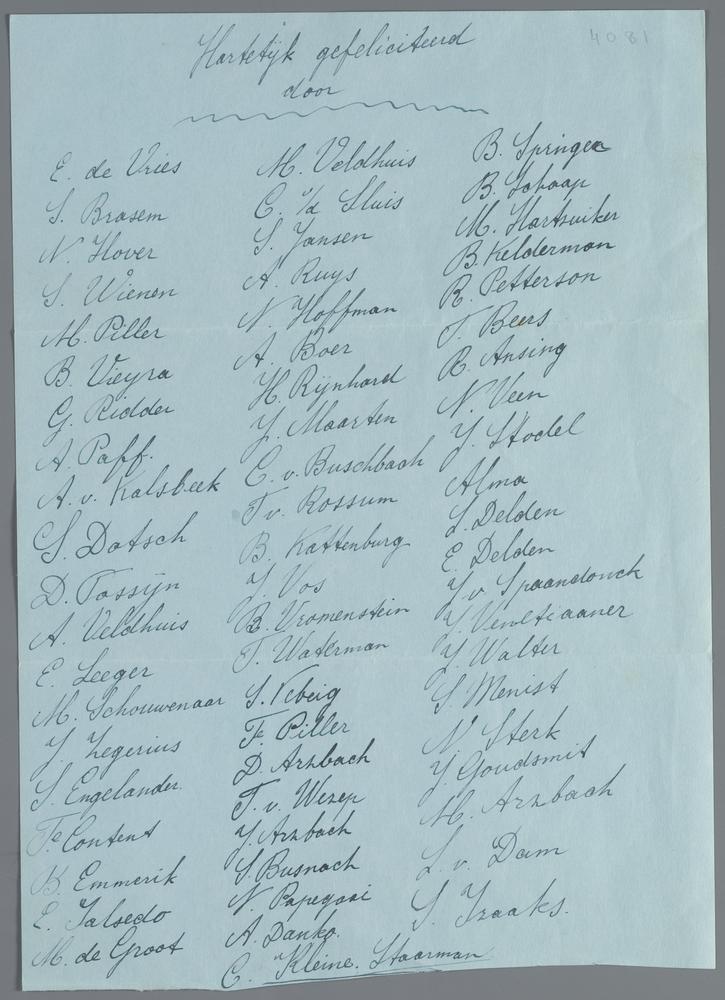 4081
Hartelijk gefeliciteerd
door
E. de Vries
S. Brasem
N. Hover
S. Wienen
M. Piller
B. Vieyra
G. Ridder
A. Paff.
A. v. Kalsbeek
S. Dotsch
D. Tassijn
A. Veldhuis
E. Leeger
M. Schouwenaar
J. Zegerius
S. Engelander.
F. Content
B. Emmerik
E. Salsedo
M. de Groot
M. Veldhuis
C. v/d Sluis
S. Jansen
A. Ruys
N. Hoffman
A. Boer
H. Rijnhard
J. Maarten
C. v. Buschbach
T. v. Rossum
B. Kattenburg
J. Vos
B. Vromenstein
T. Waterman
F. Piller
D. Arzbach
T. v. Wezep
J. Arzbach
S. Busnach
N. Papegaai
A. Danko.
C. Kleine. Staarman
B. Springer
B. Schaap
M. Hartsuiker
B. Kelderman
R. Petterson
T. Beers
R. Ansing
N. Veen
J. Stodel
Alma
L. Delden
E. Delden
J. v. Spaandonck
J. Venetiaaner
J. Walter
S. Menist
N. Sterk
J. Goudsmit
M. Arzbach
L. v. Dam
S. Izaaks.